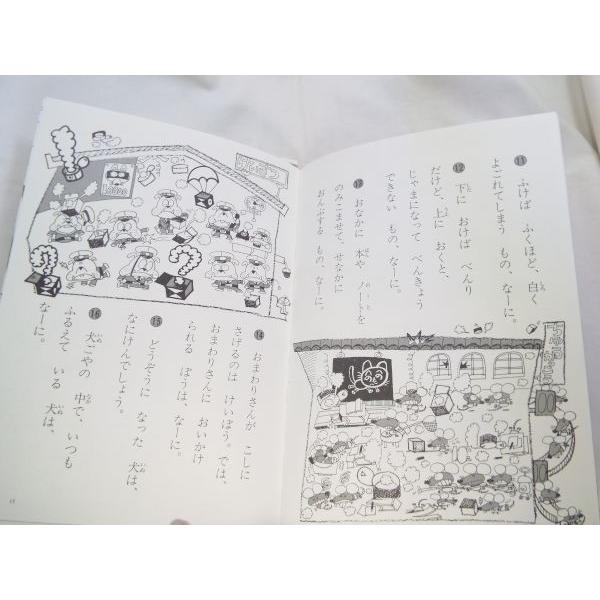 ⑪ ふけば ふくほど、白く
よごれてしまう もの、なーに。
⑫ 下に おけば べんり
だけど、上に おくと、
じゃまになって べんきょう
できない もの、なーに。
⑬ おなかに 本や ノートを
のみこませて、せなかに
おんぶする もの、なーに。
⑭ おまわりさんが こしに
さげるのは けいぼう。では、
おまわりさんに おいかけ
られる ぼうは、なーに。
⑮ どうぞうに なった 犬は、
なにけんでしょう。
⑯ 犬ごやの 中で、いつも
ふるえて いる 犬は、
なーに。